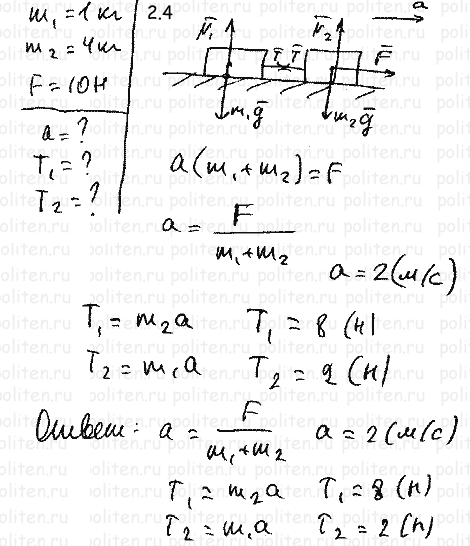 m₁ = 1 кг
2.4
m₂ = 4 кг
F = 10Н
a = ?
T₁ = ?
T₂ = ?
N̅₁
N̅₂
a
T̅ T̅
F̅
m₁g̅
m₂g̅
a(m₁+m₂) = F
a = F/(m₁+m₂)
a = 2(м/с)
T₁ = m₂a T₁ = 8 (н)
T₂ = m₁a T₂ = 2 (н)
Ответ: a = F/(m₁+m₂) a = 2(м/с)
T₁ = m₂a T₁ = 8 (н)
T₂ = m₁a T₂ = 2 (н)
politen.ru